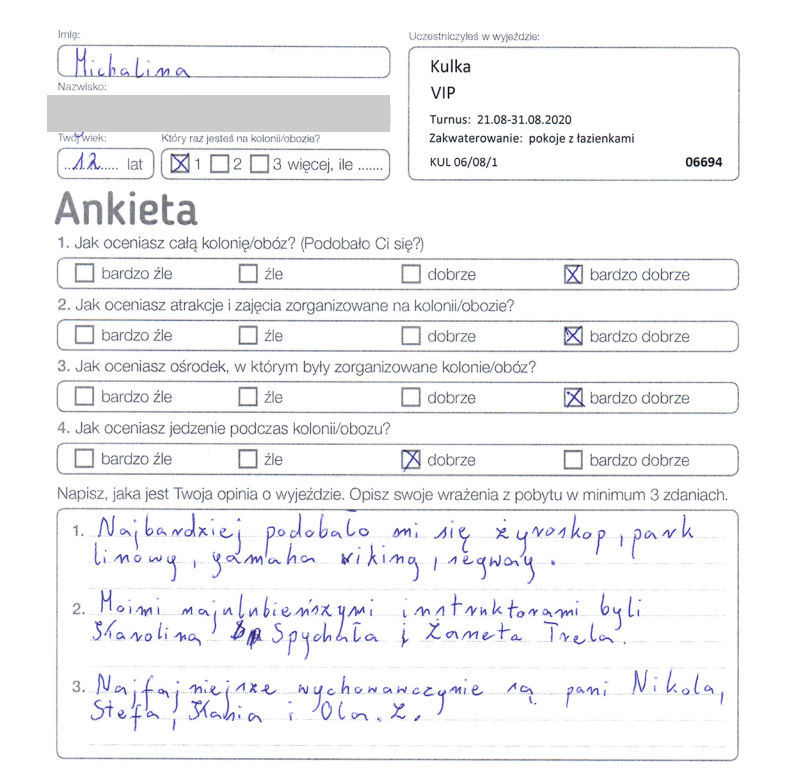 Imię:
Michalina
Nazwisko:
Twój wiek:
..12..... lat
Który raz jesteś na kolonii/obozie?
1 2 3 więcej, ile .......
Uczestniczyłeś w wyjeździe:
Kulka
VIP
Turnus: 21.08-31.08.2020
Zakwaterowanie: pokoje z łazienkami
KUL 06/08/1 06694
Ankieta
1. Jak oceniasz całą kolonię/obóz? (Podobało Ci się?)
bardzo źle źle dobrze bardzo dobrze
2. Jak oceniasz atrakcje i zajęcia zorganizowane na kolonii/obozie?
bardzo źle źle dobrze bardzo dobrze
3. Jak oceniasz ośrodek, w którym były zorganizowane kolonie/obóz?
bardzo źle źle dobrze bardzo dobrze
4. Jak oceniasz jedzenie podczas kolonii/obozu?
bardzo źle źle dobrze bardzo dobrze
Napisz, jaka jest Twoja opinia o wyjeździe. Opisz swoje wrażenia z pobytu w minimum 3 zdaniach.
1. Najbardziej podobało mi się żyroskop, park
linowy, yamaha viking, segway.
2. Moimi najulubieńszymi instruktorami byli
Karolina Spychała i Żaneta Trela.
3. Najfajniejsze wychowawczynie są pani Nikola,
Stefa, Kania i Ola. Z.